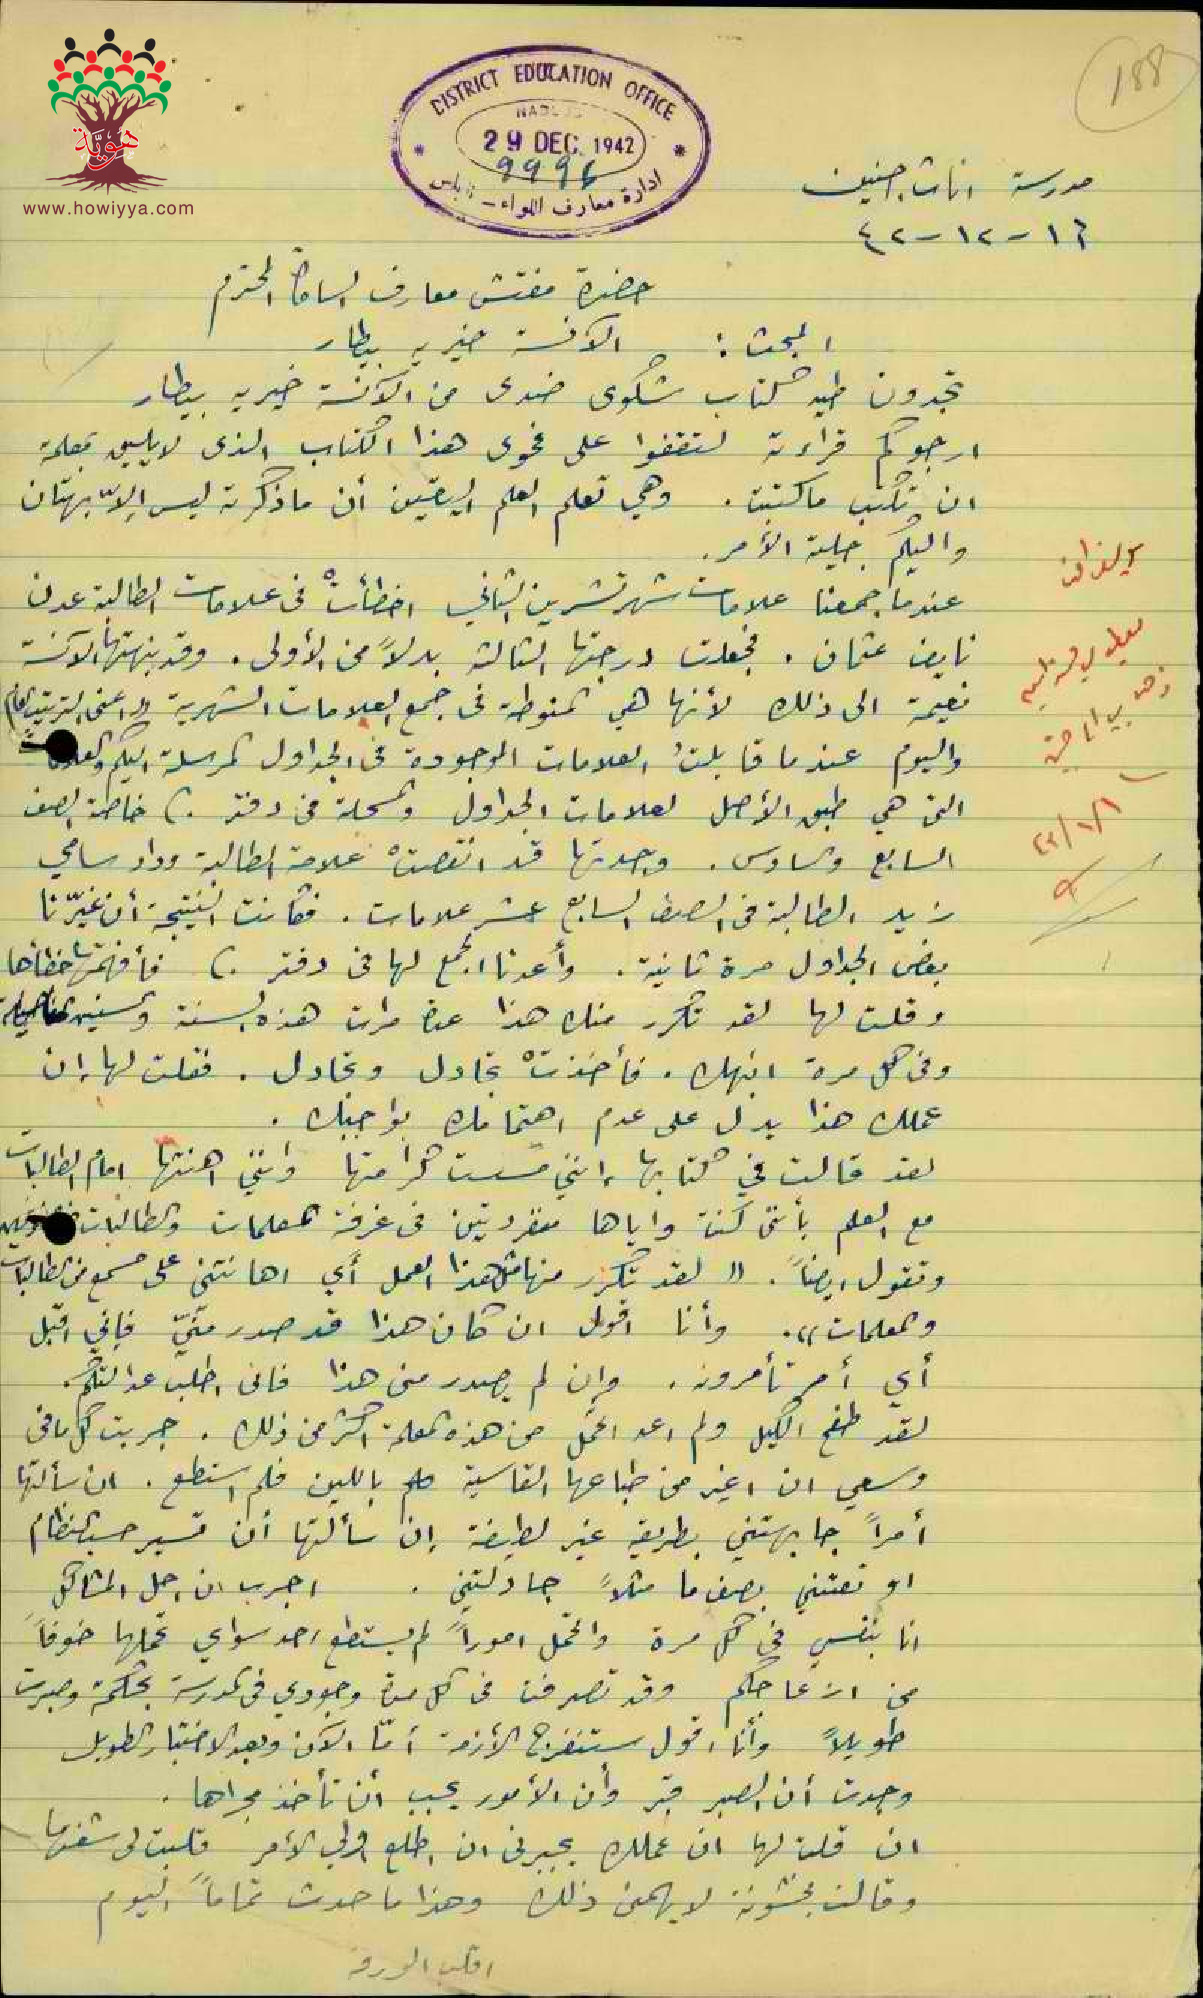 188
هويّة
www.howiyya.com
DISTRICT EDUCATION OFFICE
NABLUS
29 DEC 1942
9996
ادارة معارف اللواء – نابلس
مدرسة اناث جنين
١٦-١٢-٤٢
حضرة مفتش معارف السامرة المحترم
المبحث: الآنسة خيريه بيطار
تجدون طيه كتاب شكوى ضدى من الآنسة خيريه بيطار
ارجوكم قراءته لتقفوا على فحوى هذا الكتاب الذى لا يليق بمعلمة
ان تكتب ما كتبت. وهي تعلم العلم اليقين أن ما ذكرته ليس الاّ بهتان
واليكم جلية الأمر.
عندما جمعنا علامات شهر تشرين الثاني اخطأتْ فى علامات الطالبة عدن
نايف عثمان. فجعلت درجتها الثالثة بدلاً من الأولى. وقد نبهتها الآنسة
نعيمة الى ذلك لأنها هي المنوطة فى جمع العلامات الشهرية اعنى الترتيب العام
واليوم عندما قابلتُ العلامات الموجودة فى الجداول المرسلة اليكم
التى هي طبق الأصل لعلامات الجداول والمسجلة فى دفتر خاصة الصف
السابع والسادس. وجدتها قد انقصتْ علامة الطالبة وداد سامي
زيد الطالبة فى الصف السابع عشر علامات. فكانت النتيجة أن غيّرنا
بعض الجداول مرة ثانية. وأعدنا الجمع لها فى دفتر فأفهمتها خطأها
وقلت لها لقد تكرر منك هذا عدة مرات هذه السنة والسنين الماضية
وفى كل مرة انبهك. فأخذتْ تجادل وتجادل. فقلت لها إن
عملك هذا يدل على عدم اهتمامك بواجبك.
لقد قالت في كتابها إنني مسست كرامتها وانني اهنتها امام الطالبات
مع العلم بأننى كنت واياها منفردتين فى غرفة المعلمات والطالبات
وتقول ايضاً. "لقد تكرر منها مثل هذا العمل أي اهانتنى على مسمع من الطالبات
والمعلمات". وأنا اقول ان كان هذا قد صدر منّي فإني اقبل
أي أمر تأمرونه. وإن لم يصدر منى هذا فانى اطلب عدالتكم.
لقد طفح الكيل ولم اعد اتحمّل من هذه المعلمة اكثر من ذلك. جربت كل ما فى
وسعي ان اغير من طباعها القاسية باللين فلم استطع. ان سألتها
أمراً جابهتني بطريقة غير لطيفة إن سألتها أن تسير حسب النظام
او تعتني بصف ما مثلاً جادلتني. اجرب ان احل المشاكل
انا بنفسي في كل مرة واتحمل اموراً لم يستطع احد سواي تحملها خوفاً
من ازعاجكم وقد تصرفت فى كل مدة وجودي فى المدرسة بحكمة وصبرت
طويلاً وأنا اقول ستنفرج الأزمة أمّا الآن وبعد الاختبار الطويل
وجدت أن الصبر قبر وأن الأمور يجب أن تأخذ مجراها.
ان قلت لها ان عملك يجبرنى ان اطلع اولي الأمر قلبت لى شفتها
وقالت بخشونة لا يهمنى ذلك وهذا ما حدث تماماً اليوم
اقلب الورقة